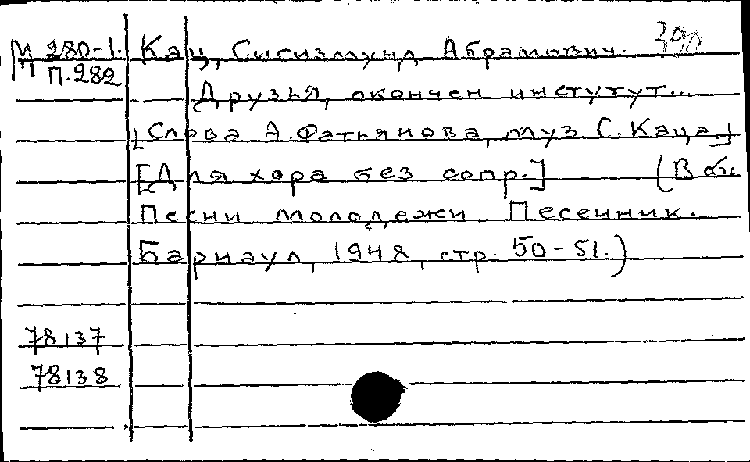 М 280-1. Кац, Сигизмунд Абрамович. 390
П. 282
Друзья, окончен инстутут...
[Слова А. Фатьянова, муз С. Каца.]
[Для хора без сопр.] (В сб.
Песни молодежи. Песенник.
Барнаул, 1948, стр. 50-51.)
78137
78138